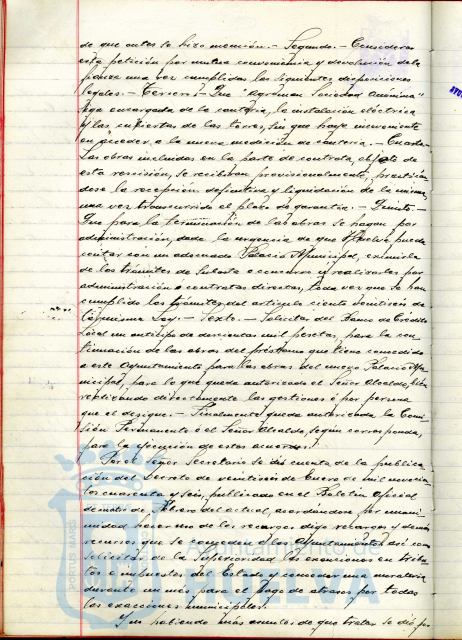 de que antes se hizo mención.- Segundo.- Considerar
esta petición por mutua conveniencia y devolución de la
fianza una vez cumplidas las siguientes disposiciones
legales.- Tercero.- Que "Agroman Sociedad Anónima"
siga encargada de la cantería, la instalación eléctrica
y las cubiertas de las torres, sin que haya inconveniente
en acceder a la nueva medición de cantería.- Cuarto.-
Las obras incluidas en la parte de contrata, objeto de
esta rescisión, se recibirán provisionalmente, practicán-
dose la recepción definitiva y liquidación de la misma,
una vez transcurrido el plazo de garantía.- Quinto.-
Que para la terminación de las obras se hagan por
administración, dada la urgencia de que Huelva pueda
contar con un adecuado Palacio Municipal, eximirla
de los trámites de Subasta o concurso y realizarlas por
administración o contratas directas, toda vez que se han
cumplido los trámites del artículo ciento veintiseis de
la misma Ley.- Sexto.- Solicitar del Banco de Crédito
Local un anticipo de doscientas mil pesetas, para la con-
tinuación de las obras del préstamo que tiene concedido
a este Ayuntamiento para las obras del nuevo Palacio Mu-
nicipal, para lo que queda autorizado el Señor Alcalde, bien
realizando directamente las gestiones o por persona
que él designe.- Finalmente queda autorizada la Comi-
sión Permanente o el Señor Alcalde, según corresponda,
para la ejecución de estos acuerdos.
Por el Señor Secretario se dió cuenta de la publica-
ción del Decreto de veinticinco de Enero de mil novecien-
tos cuarenta y seis, publicado en el Boletín Oficial
de Febrero del actual, acordándose por unani-
midad hacer uso de los recargos digo recargos y demás
recursos que se conceden a los Ayuntamientos así como
solicitar de la Superioridad las exenciones en tribu-
tos e impuestos del Estado y conceder una moratoria
durante un mes para el pago de atrasos por todas
las exacciones municipales.
Y no habiendo más asuntos de que tratar se dió por
Ayuntamiento de
HUELVA
PORTUS MARIS